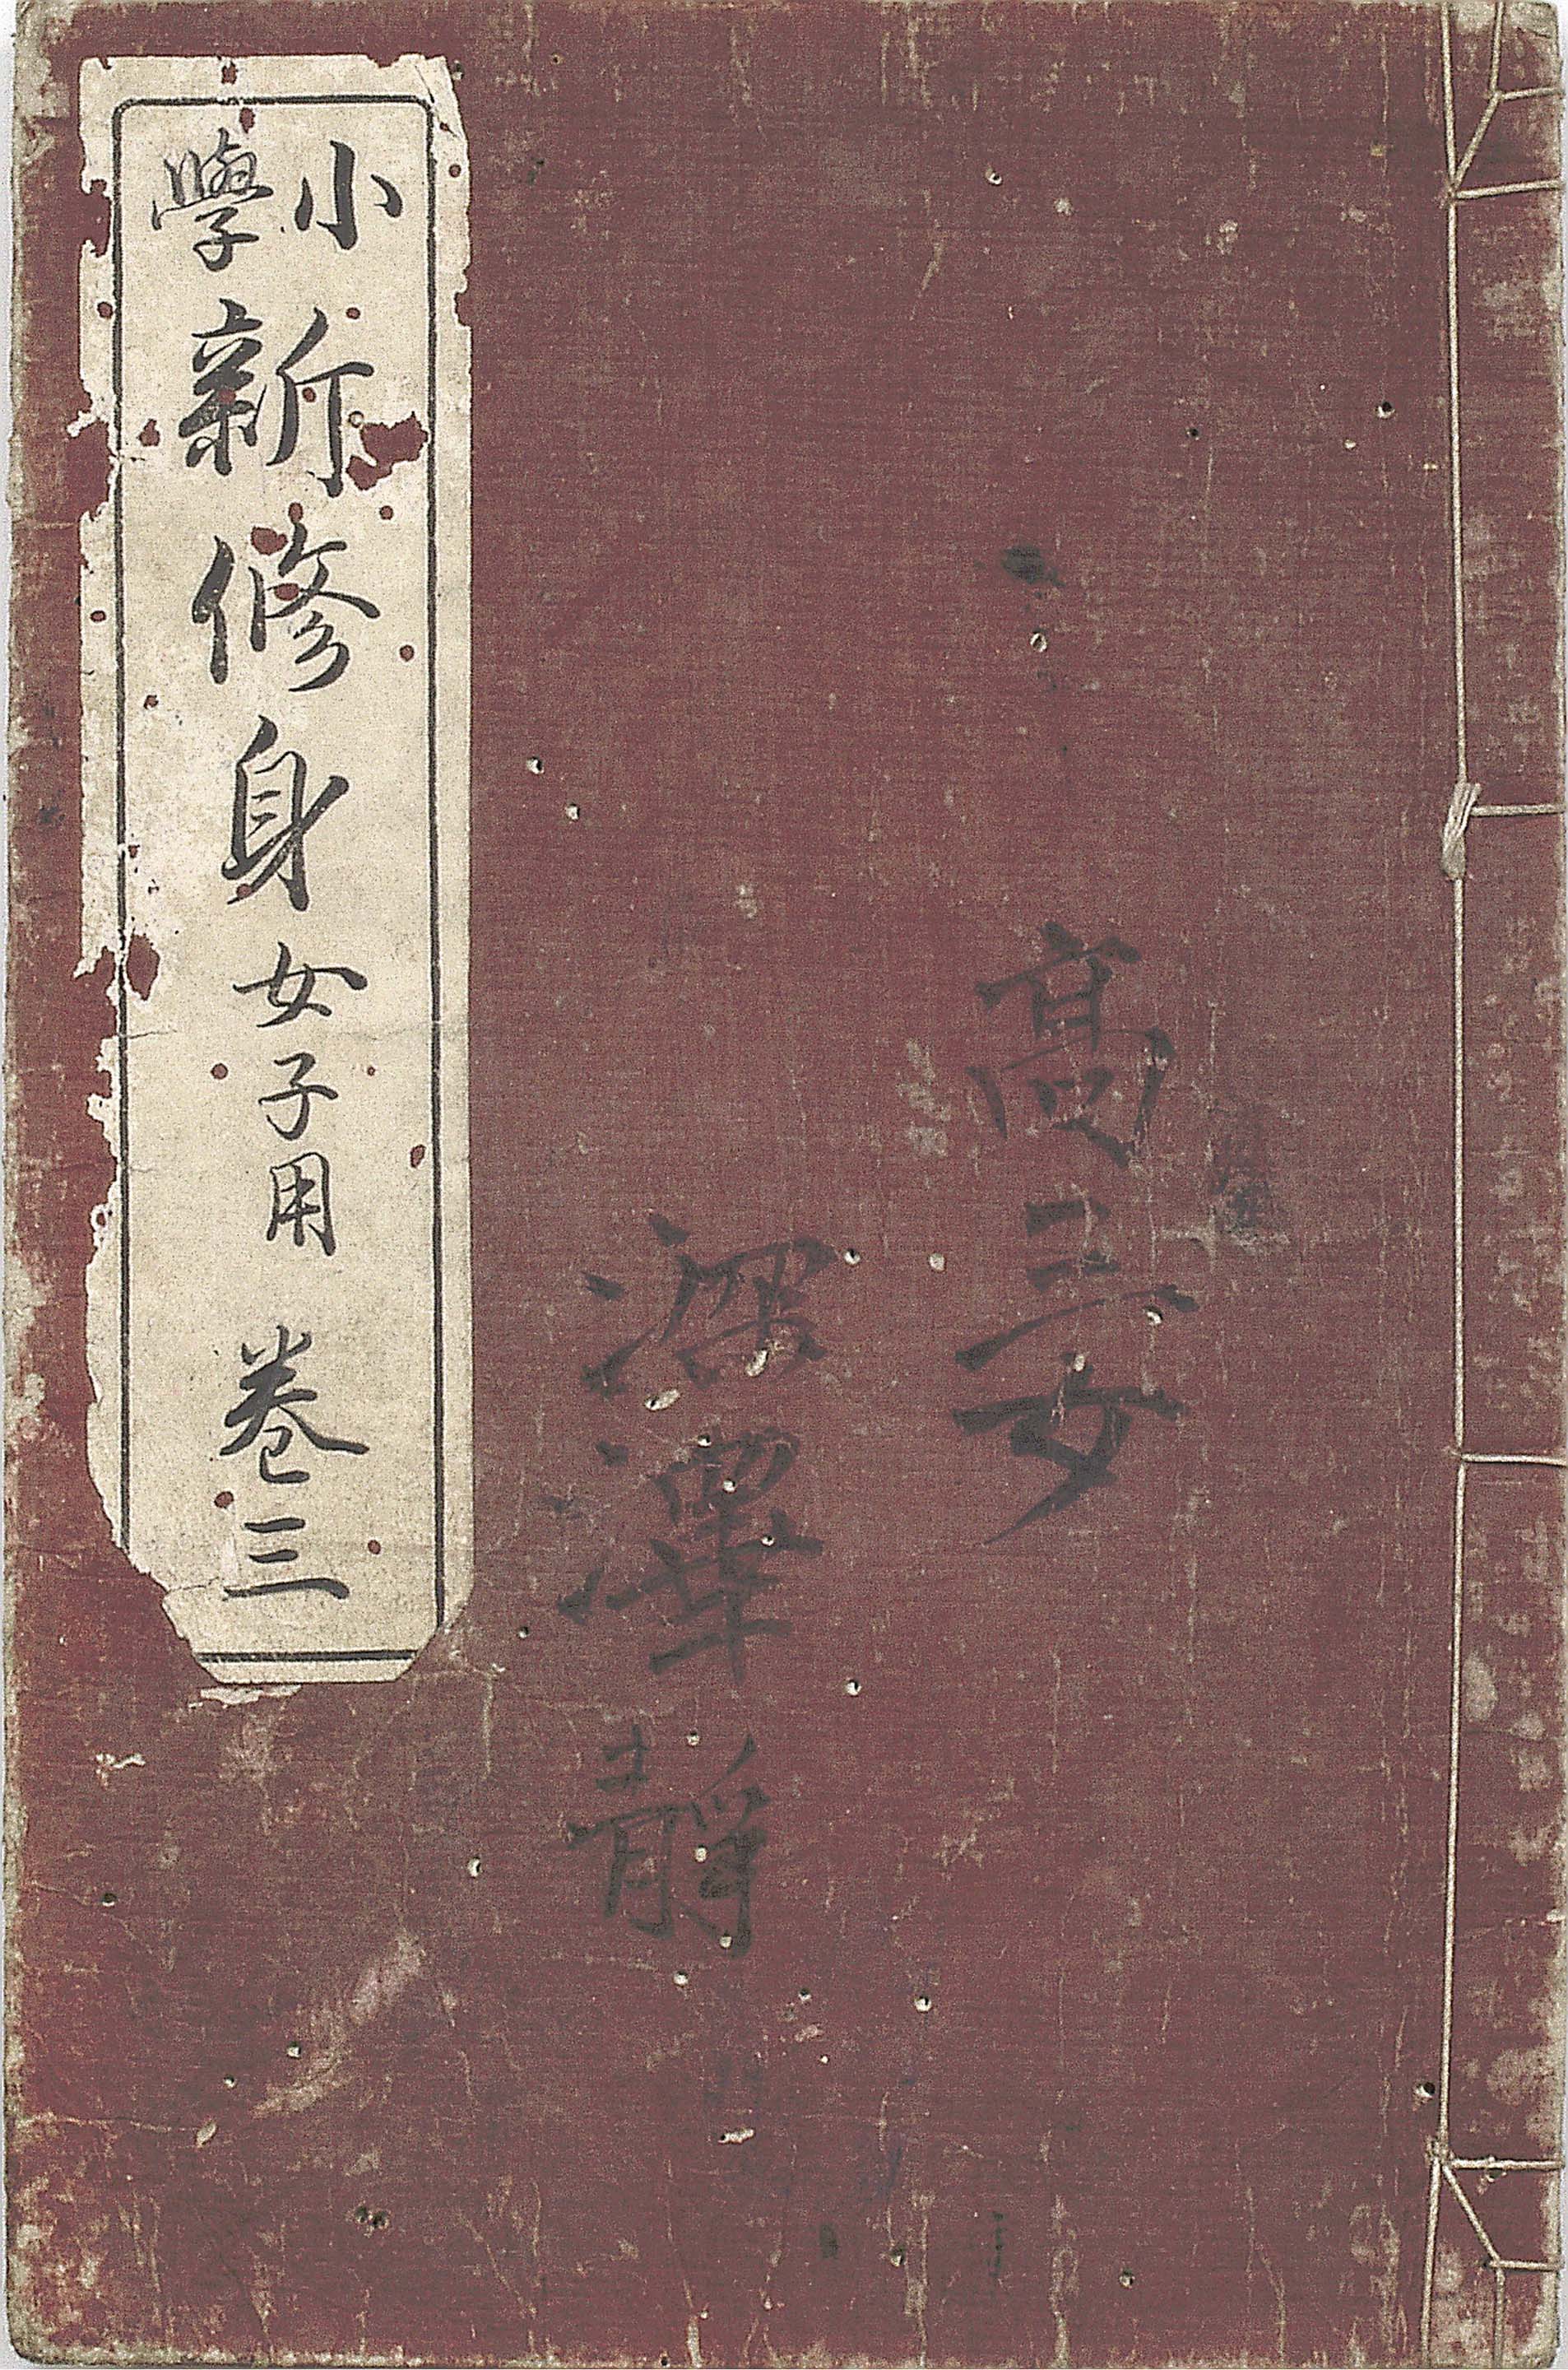 高三女
深澤静
小學新修身女子用 卷三